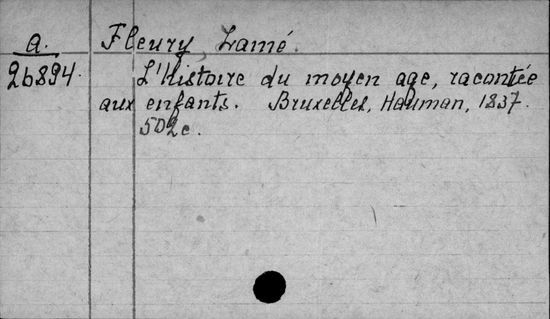 a. Fleury, Lamé.
26894. L'Histoire du moyen age, racontée
aux enfants. Bruxelles, Hauman, 1837.
502c.